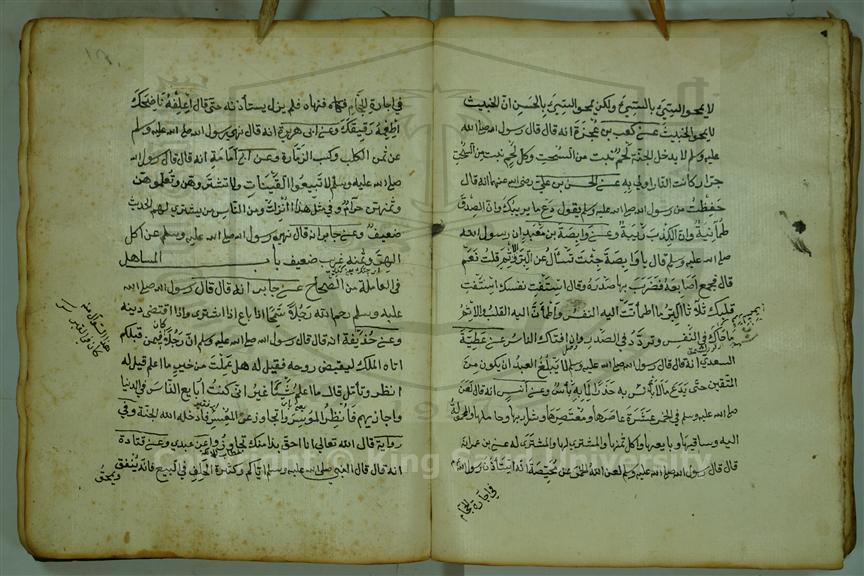 لا يمحو السيئ بالسيئ ولكن يمحو السيئ بالحسن ان الخبيث
لا يمحو الخبيث وعن كعب بن عجرة انه قال قال رسول الله صلى الله
عليه وسلم لا يدخل الجنة لحم نبت من السحت وكل لحم نبت من السحت
كانت النار اولى به عن الحسن بن علي رضي الله عنهما انه قال
حفظت من رسول الله صلى الله عليه وسلم يقول دع ما يريبك وان الصدق
طمأنينة وان الكذب ريبة وعن وابصة بن معبد ان رسول الله
صلى الله عليه وسلم قال يا وابصة جئت تسأل عن البر والاثم قلت نعم
قال فجمع اصابعه فضرب بها صدره وقال استفت نفسك استفت
قلبك ثلاثا البر ما اطمأنت اليه النفس واطمأن اليه القلب والاثم
ما حاك في النفس وتردد في الصدر وان افتاك الناس عن عطية
السعدي انه قال قال رسول الله صلى الله عليه وسلم لا يبلغ العبد ان يكون من
المتقين حتى يدع ما لا بأس به حذرا لما به بأس وعن أنس انه قال لعن
صلى الله عليه وسلم في الخمر عشرة عاصرها ومعتصرها وشاربها وحاملها والمحمولة
اليه وساقيها وبايعها وآكل ثمنها والمشتري لها والمشترى له عن بن عمر انه
قال قال رسول الله صلى الله عليه وسلم لعن الله الخمر عن محيصة انه استأذن رسول الله
في اجارة الحجام
في اجارة الحجام فنهاه فلم يزل يستأذنه حتى قال اعلفه ناضحك
اطعمه رقيقك وعن ابي هريرة انه قال نهى رسول الله صلى الله عليه وسلم
عن ثمن الكلب وكسب الزمارة وعن ابي أمامة انه قال قال رسول الله
صلى الله عليه وسلم لا تبيعوا القينات ولا تشتروهن ولا تعلموهن
وثمنهن حرام وفي مثل هذا انزلت ومن الناس من يشتري لهو الحديث
ضعيف وعن جابر انه قال نهى رسول الله صلى الله عليه وسلم عن اكل
الهر وثمنه غريب ضعيف باب المساهلة
في المعاملة من الصحاح عن جابر انه قال قال رسول الله صلى الله
عليه وسلم رحم الله رجلا سمحا اذا باع اذا اشترى واذا اقتضى دينه
وعن حذيفة انه قال قال رسول الله صلى الله عليه وسلم ان رجلا كان فيمن قبلكم
اتاه الملك ليقبض روحه فقيل له هل عملت من خير قال ما اعلم قيل له
انظر وتأمل قال ما اعلم شيئا غير اني كنت أبايع الناس في الدنيا
واجازيهم فأنظر الموسر واتجاوز عن المعسر فادخله الله الجنة وفي
رواية قال الله تعالى انا احق بذا منك تجاوزوا عن عبدي وعن قتادة
انه قال قال النبي صلى الله عليه وسلم اياكم وكثرة الحلف في البيع فانه ينفق
ويمحق
هذا السؤال منه
كان في القبر
Copyright © King Saud University